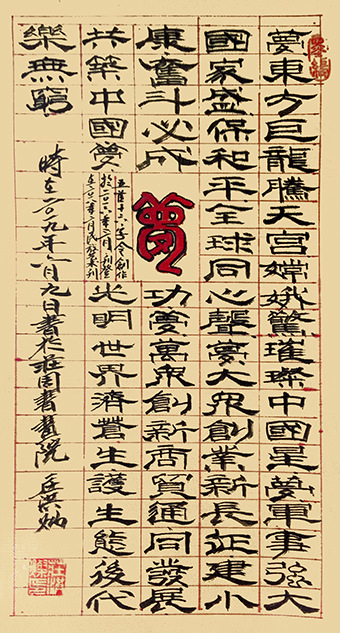 夢東方巨龍騰天宮嫦娥驚璀璨中國星夢軍事強大
國家盛保和平全球同心聲夢大眾創業新長征建小
康奮斗必成
夢
功夢萬眾創新商貿通同發展
共築中國夢
五首十六字令創作
光明世界濟蒼生護生態後代
樂無窮
時在二〇一九年月九日書於莊書畫院